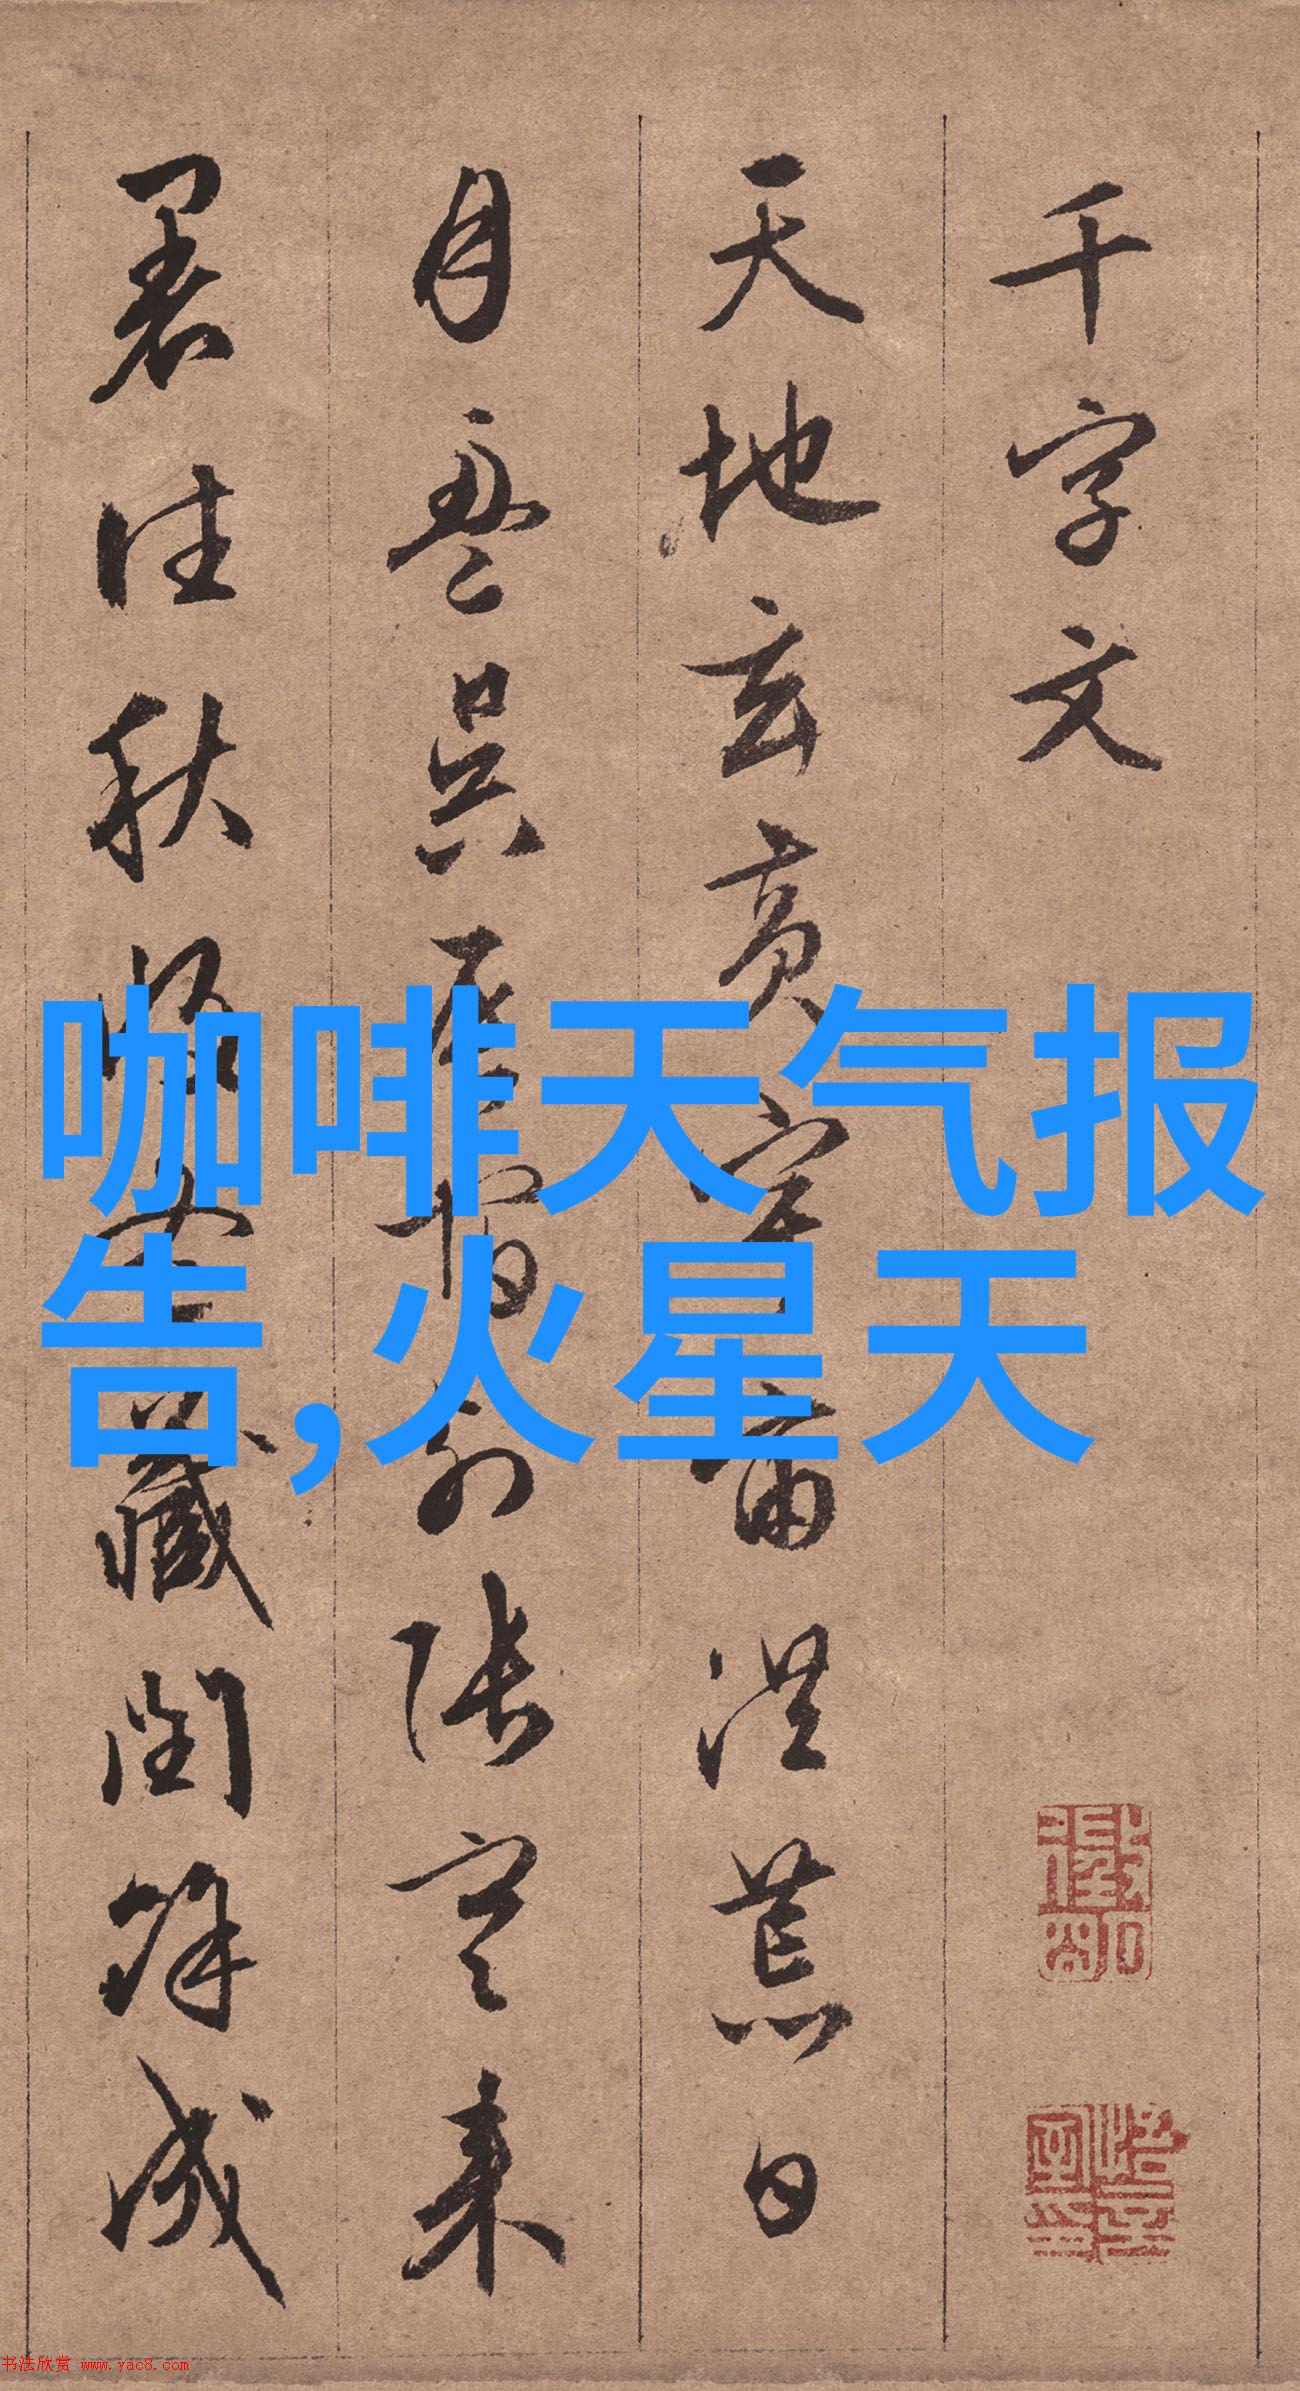 千字文
天地玄黃宇宙洪荒日
月盈昃辰宿列張寒来
暑往秋收冬藏閏餘成
咖啡天气报
告,火星天
书法欣赏 www.yac8.com